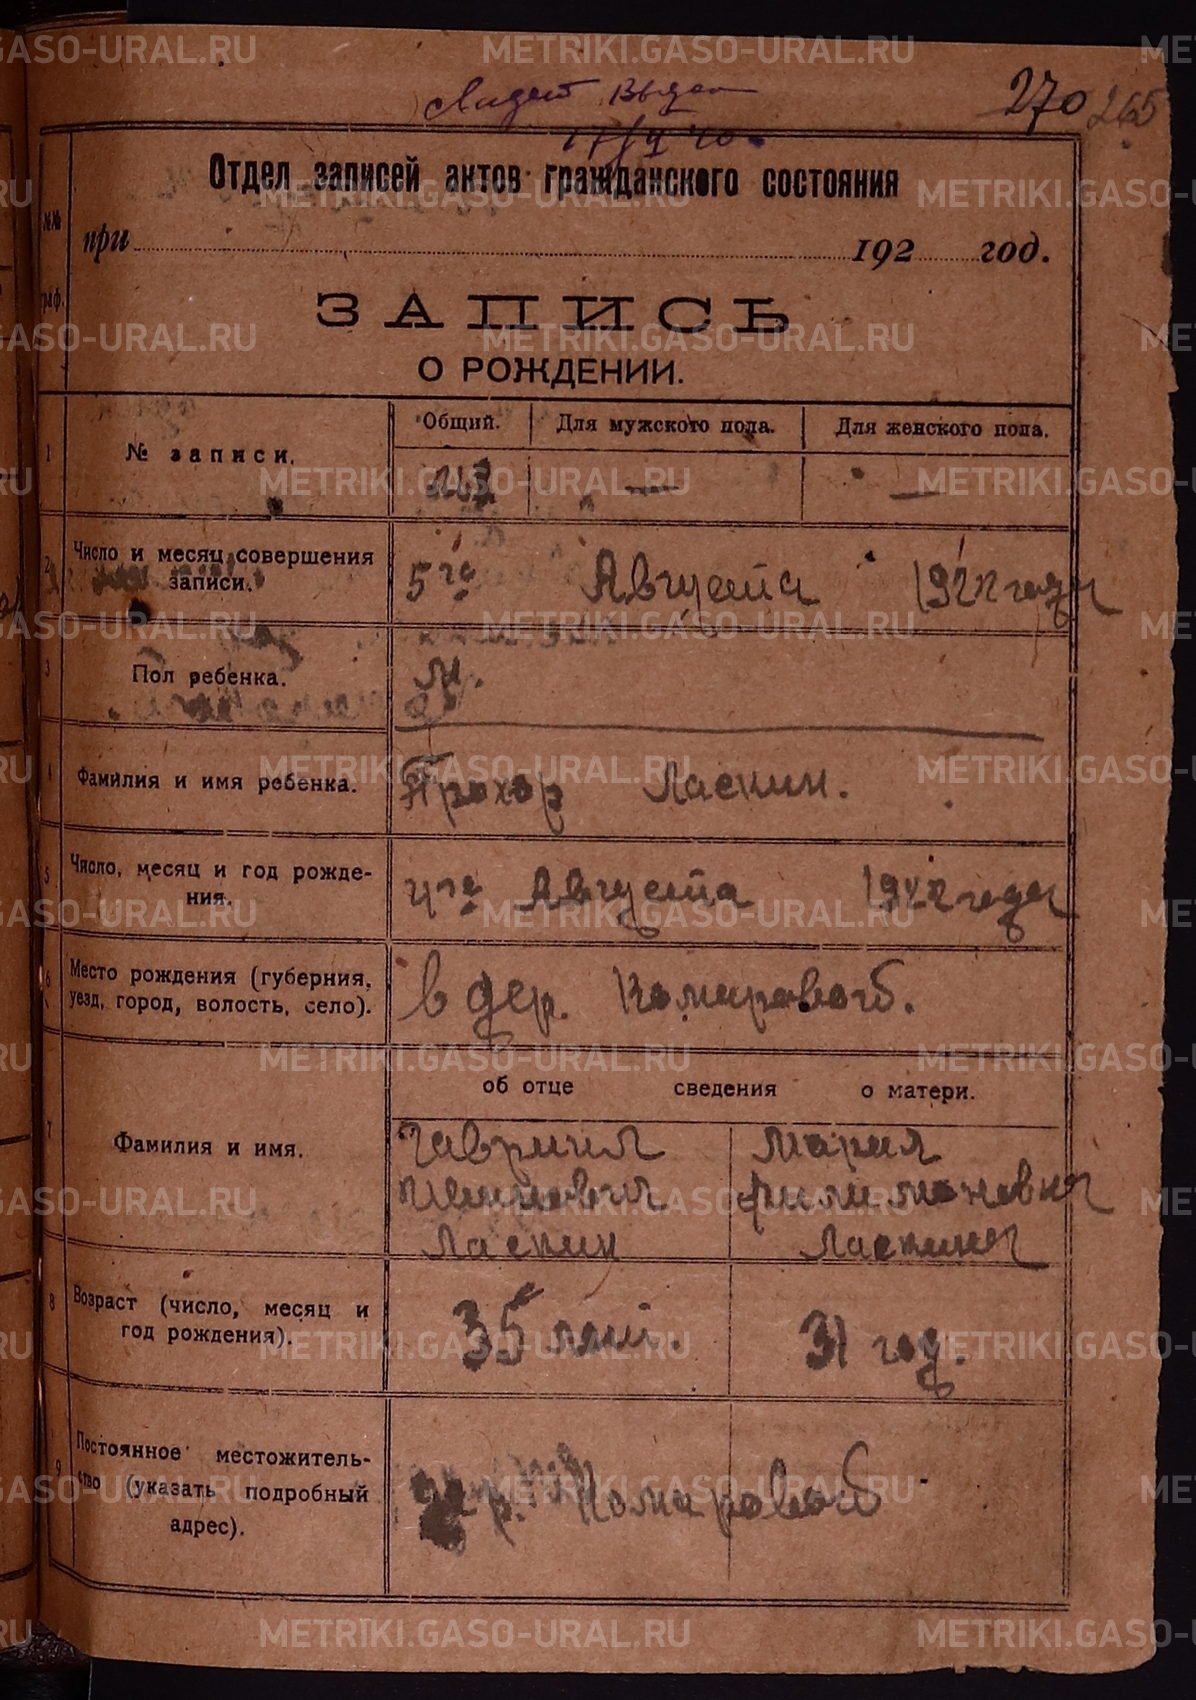 Свидет Выдан
270 265
17/V 40
Отдел записей актов гражданского состояния
№№ граф.
при 192 год.
ЗАПИСЬ
О РОЖДЕНИИ.
1 № записи. Общий. Для мужского пола. Для женского пола.
— —
2 Число и месяц совершения записи. 5го Августа 1922 года
3 Пол ребенка. М.
4 Фамилия и имя ребенка. Прохор Ласкин.
5 Число, месяц и год рождения. 4го Августа 1922 года
6 Место рождения (губерния, уезд, город, волость, село). в дер. Комаровой.
об отце сведения о матери.
7 Фамилия и имя.
Гавриил Мария
Филимоновна
Ласкин Ласкина
8 Возраст (число, месяц и год рождения). 35 лет. 31 год.
9 Постоянное местожительство (указать подробный адрес). дер. Комаровой
METRIKI.GASO-URAL.RU